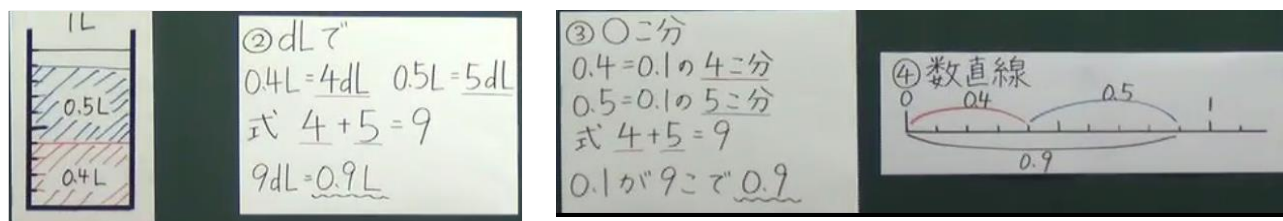 1L
0.5L
0.4L
②dLで
0.4L=4dL 0.5L=5dL
式 4+5=9
9dL=0.9L
③○こ分
0.4=0.1の4こ分
0.5=0.1の5こ分
式 4+5=9
0.1が9こで0.9
④数直線
0 0.4 0.5 1
0.9